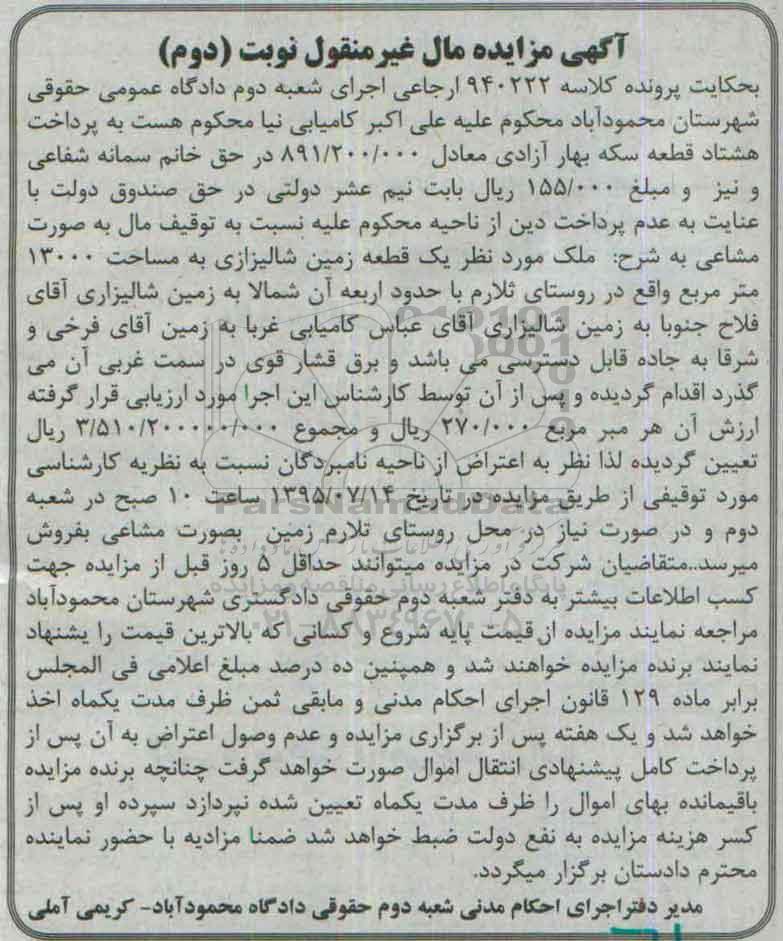 آگهی مزایده مال غیرمنقول نوبت (دوم)
بحکایت پرونده کلاسه ۹۴۰۲۲۲ ارجاعی اجرای شعبه دوم دادگاه عمومی حقوقی
شهرستان محمودآباد محکوم علیه علی اکبر کامیابی نیا محکوم هست به پرداخت
هشتاد قطعه سکه بهار آزادی معادل ۸۹۱/۲۰۰/۰۰۰ در حق خانم سمانه شفاعی
و نیز و مبلغ ۱۵۵/۰۰۰ ریال بابت نیم عشر دولتی در حق صندوق دولت با
عنایت به عدم پرداخت دین از ناحیه محکوم علیه نسبت به توقیف مال به صورت
مشاعی به شرح: ملک مورد نظر یک قطعه زمین شالیزازی به مساحت ۱۳۰۰۰
متر مربع واقع در روستای ثلارم با حدود اربعه آن شمالا به زمین شالیزاری آقای
فلاح جنوبا به زمین شالیزاری آقای عباس کامیابی غربا به زمین آقای فرخی و
شرقا به جاده قابل دسترسی می باشد و برق قشار قوی در سمت غربی آن می
گذرد اقدام گردیده و پس از آن توسط کارشناس این اجرا مورد ارزیابی قرار گرفته
ارزش آن هر مبر مربع ۲۷۰/۰۰۰ ریال و مجموع ۳/۵۱۰/۲۰۰۰۰۰/۰۰۰ ریال
تعیین گردیده لذا نظر به اعتراض از ناحیه نامبردگان نسبت به نظریه کارشناسی
مورد توقیفی از طریق مزایده در تاریخ ۱۳۹۵/۰۷/۱۴ ساعت ۱۰ صبح در شعبه
دوم و در صورت نیاز در محل روستای تلارم زمین بصورت مشاعی بفروش
میرسد..متقاضیان شرکت در مزایده میتوانند حداقل ۵ روز قبل از مزایده جهت
کسب اطلاعات بیشتر به دفتر شعبه دوم حقوقی دادگستری شهرستان محمودآباد
مراجعه نمایند مزایده از قیمت پایه شروع و کسانی که بالاترین قیمت را یشنهاد
نمایند برنده مزایده خواهند شد و همپنین ده درصد مبلغ اعلامی فی المجلس
برابر ماده ۱۲۹ قانون اجرای احکام مدنی و مابقی ثمن ظرف مدت یکماه اخذ
خواهد شد و یک هفته پس از برگزاری مزایده و عدم وصول اعتراض به آن پس از
پرداخت کامل پیشنهادی انتقال اموال صورت خواهد گرفت چنانچه برنده مزایده
باقیمانده بهای اموال را ظرف مدت یکماه تعیین شده نپردازد سپرده او پس از
کسر هزینه مزایده به نفع دولت ضبط خواهد شد ضمنا مزادیه با حضور نماینده
محترم دادستان برگزار میگردد.
مدیر دفتراجرای احکام مدنی شعبه دوم حقوقی دادگاه محمودآباد- کریمی آملی
ParsNamadData
پایگاه اطلاع رسانی مناقصه و مزایده
۰۲۱-۸۸۳۴۹۶۷۰-۵